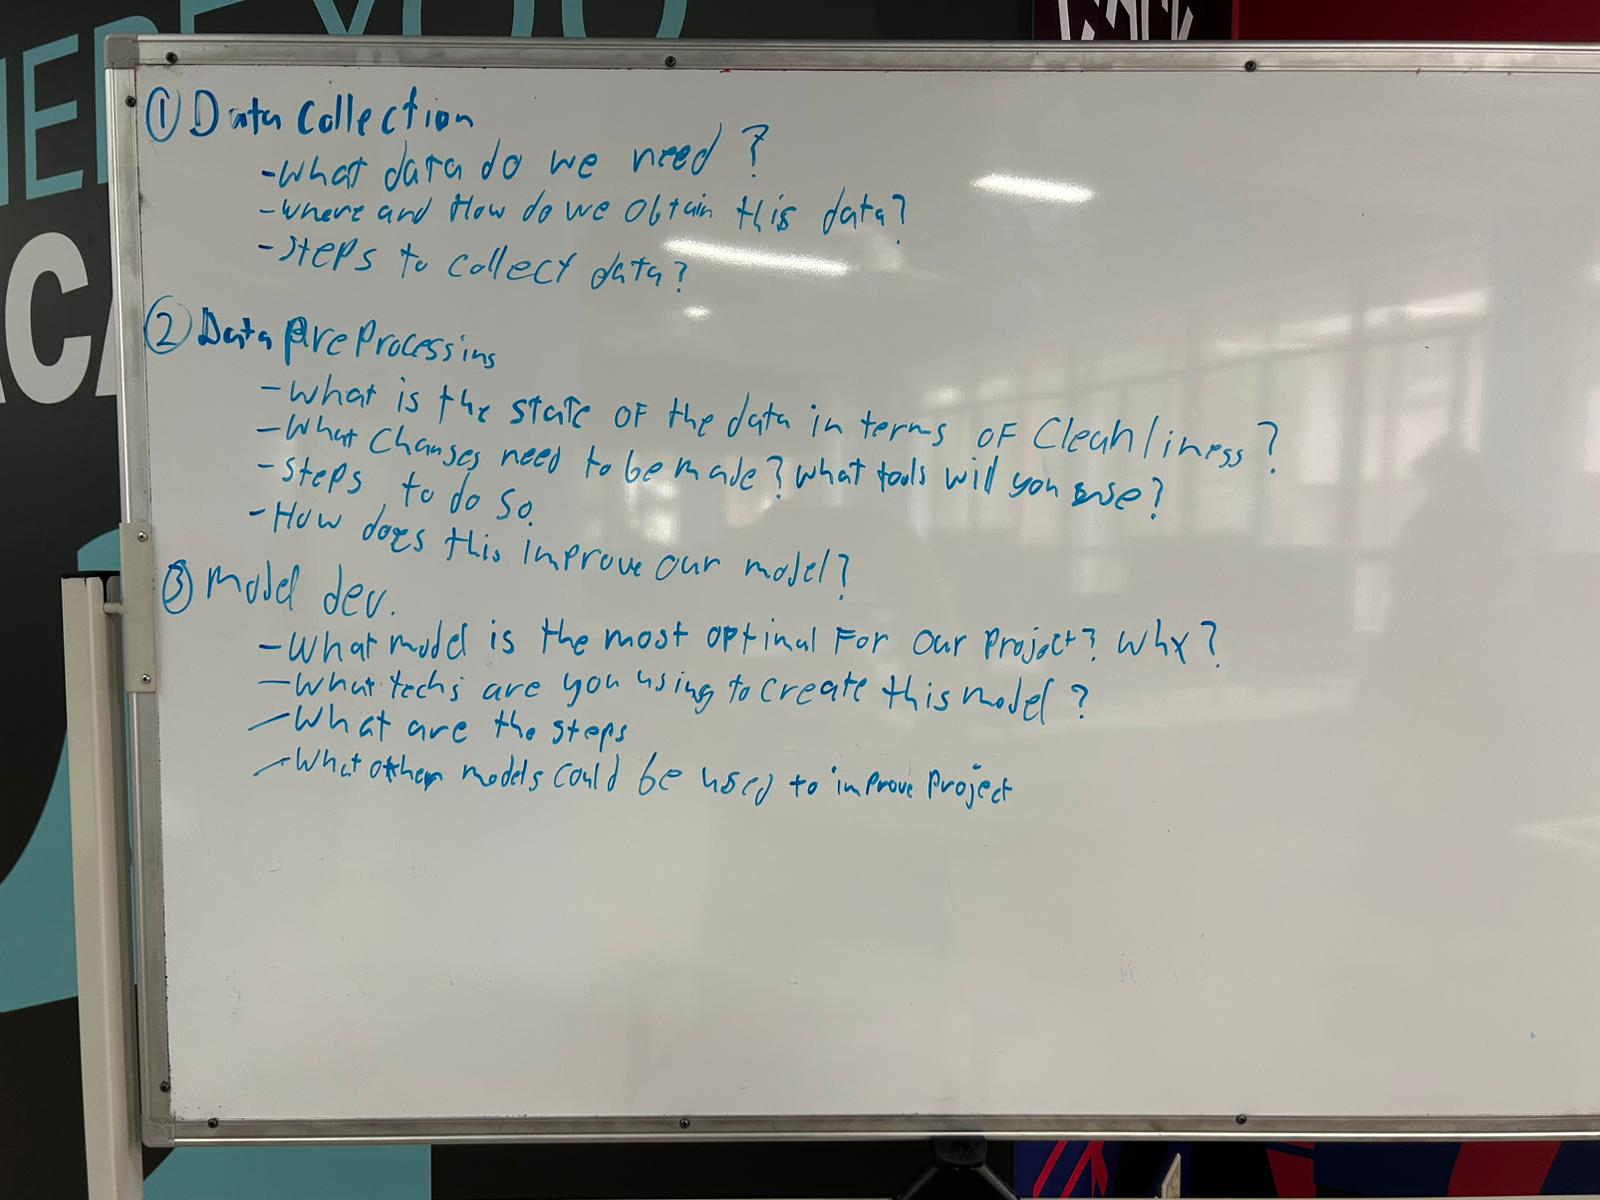 HERE YOU
ACA
① Data Collection
- What data do we need?
- Where and How do we Obtain this data?
- Steps to collect data?
② Data PreProcessing
- What is the state of the data in terms of Cleanliness?
- What Changes need to be made? What tools will you use?
- Steps to do so.
- How does this improve our model?
③ Model dev.
- What model is the most optimal For Our Project? Why?
- What techs are you using to create this model?
- What are the steps
- What other models could be used to improve Project